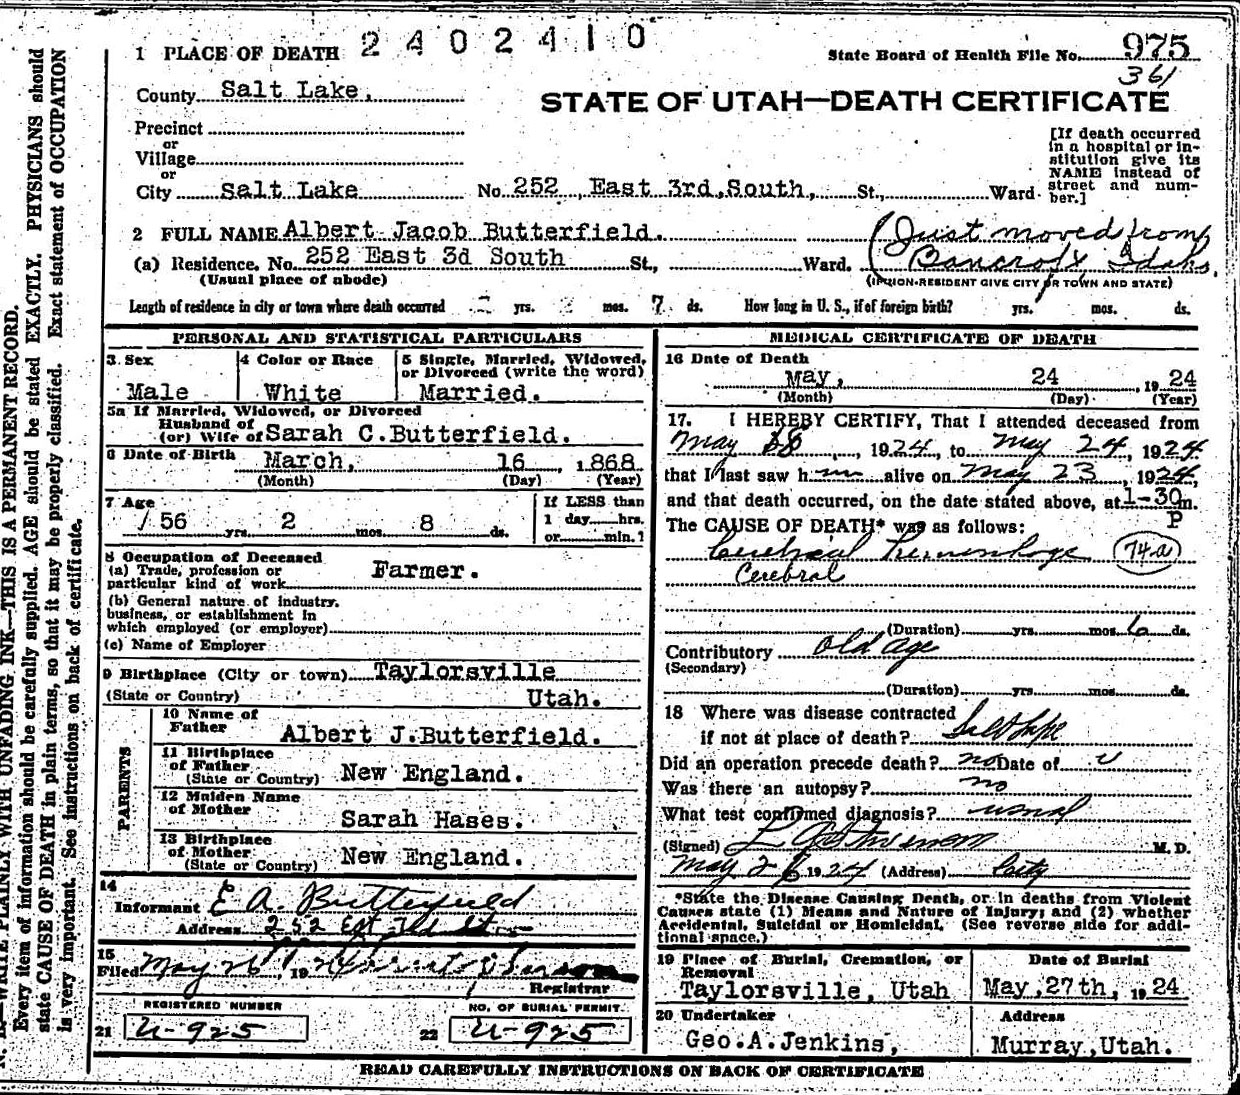 1 PLACE OF DEATH 2402410
State Board of Health File No. 975
361
County Salt Lake,
STATE OF UTAH—DEATH CERTIFICATE
Precinct
or
Village
or
City Salt Lake No. 252, East 3rd, South, St., Ward
[If death occurred
in a hospital or in-
stitution give its
NAME instead of
street and num-
ber.]
2 FULL NAME Albert Jacob Butterfield.
(a) Residence, No. 252 East 3d South St., Ward.
(Usual place of abode)
(Just moved from
Bancroft, Idaho.
(IF NON-RESIDENT GIVE CITY OR TOWN AND STATE)
Length of residence in city or town where death occurred - yrs. - mos. 7 ds. How long in U. S., if of foreign birth? yrs. mos. ds.
PERSONAL AND STATISTICAL PARTICULARS
3 Sex
Male
4 Color or Race
White
5 Single, Married, Widowed,
or Divorced (write the word)
Married.
5a If Married, Widowed, or Divorced
Husband of
(or) Wife of Sarah C.Butterfield.
6 Date of Birth March, 16, 1868
(Month) (Day) (Year)
7 Age
56 yrs. 2 mos. 8 ds.
If LESS than
1 day hrs.
or min.?
8 Occupation of Deceased
(a) Trade, profession or
particular kind of work Farmer.
(b) General nature of industry,
business, or establishment in
which employed (or employer)
(c) Name of Employer
9 Birthplace (City or town) Taylorsville
(State or Country) Utah.
PARENTS
10 Name of
Father Albert J.Butterfield.
11 Birthplace
of Father
(State or Country) New England.
12 Maiden Name
of Mother Sarah Hases.
13 Birthplace
of Mother
(State or Country) New England.
14
Informant E A. Butterfield
Address 252 East 3rd So
15
Filed May 26, 1924
Registrar
REGISTERED NUMBER
21 U-925
NO. OF BURIAL PERMIT
22 U-925
MEDICAL CERTIFICATE OF DEATH
16 Date of Death
May, 24, 1924
(Month) (Day) (Year)
17. I HEREBY CERTIFY, That I attended deceased from
May 18, 1924, to May 24, 1924
that I last saw him alive on May 23, 1924,
and that death occurred, on the date stated above, at 1-30 m.
P
The CAUSE OF DEATH* was as follows:
Cerebral Hemorrhage (74-a)
Cerebral
(Duration) yrs. mos. 6 ds.
Contributory old age
(Secondary)
(Duration) yrs. mos. ds.
18 Where was disease contracted
if not at place of death? Salt Lake
Did an operation precede death? no Date of
Was there an autopsy? no
What test confirmed diagnosis? usual
(Signed) M. D.
May 26 1924 (Address) City
*State the Disease Causing Death, or in deaths from Violent
Causes state (1) Means and Nature of Injury; and (2) whether
Accidental, Suicidal or Homicidal. (See reverse side for addi-
tional space.)
19 Place of Burial, Cremation, or
Removal
Taylorsville, Utah
Date of Burial
May,27th, 1924
20 Undertaker
Geo.A.Jenkins,
Address
Murray,Utah.
READ CAREFULLY INSTRUCTIONS ON BACK OF CERTIFICATE
WRITE PLAINLY WITH UNFADING INK—THIS IS A PERMANENT RECORD.
Every item of information should be carefully supplied. AGE should be stated EXACTLY. PHYSICIANS should
state CAUSE OF DEATH in plain terms, so that it may be properly classified. Exact statement of OCCUPATION
is very important. See instructions on back of certificate.